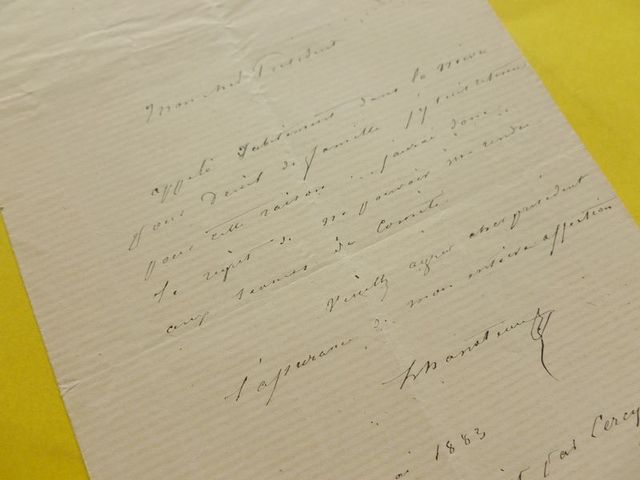 Mon cher Président
appelé subitement dans la Nièvre
pour deuil de famille j'y suis retenu
pour cette raison j'aurai donc
le regret de ne pouvoir me rendre
aux séances du Comité
Veuillez agréer cher président
l'assurance de mon entière affection
1883
par Cercy